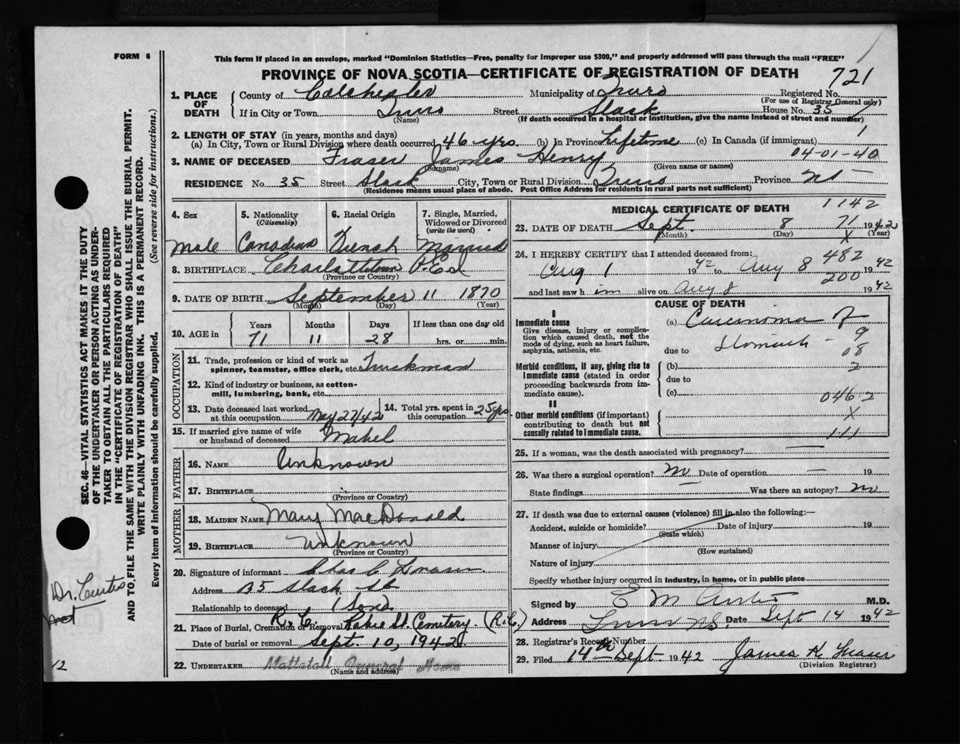 FORM 6
This form if placed in an envelope, marked "Dominion Statistics—Free, penalty for improper use $300," and properly addressed will pass through the mail "FREE"
PROVINCE OF NOVA SCOTIA—CERTIFICATE OF REGISTRATION OF DEATH
721
1. PLACE OF DEATH County of Colchester Municipality of Truro Registered No.
(For use of Registrar General only)
If in City or Town Truro Street Slack House No. 35
(Name) (If death occurred in a hospital or institution, give the name instead of street and number)
2. LENGTH OF STAY (in years, months and days)
(a) In City, Town or Rural Division where death occurred 46 yrs. (b) In Province Lifetime (c) In Canada (if immigrant)
1
04-01-40
3. NAME OF DECEASED Fraser James Henry
(Surname) (Given name or names)
RESIDENCE No. 35 Street Slack City, Town or Rural Division Truro Province NS
(Residence means usual place of abode. Post Office Address for residents in rural parts not sufficient)
4. Sex
Male
5. Nationality
(Citizenship)
Canadian
6. Racial Origin
French
7. Single, Married, Widowed or Divorced
(write the word)
Married
8. BIRTHPLACE Charlottetown P.E.I
(Province or Country)
9. DATE OF BIRTH September 11 1870
(Month) (Day) (Year)
10. AGE in
Years Months Days If less than one day old
71 11 28 hrs. or min.
OCCUPATION
11. Trade, profession or kind of work as spinner, teamster, office clerk, etc. Truckman
12. Kind of industry or business, as cotton-mill, lumbering, bank, etc.
13. Date deceased last worked at this occupation May 27/42
14. Total yrs. spent in this occupation 25 yrs.
15. If married give name of wife or husband of deceased Mabel
FATHER
16. NAME Unknown
17. BIRTHPLACE
(Province or Country)
MOTHER
18. MAIDEN NAME Mary MacDonald
19. BIRTHPLACE Unknown
(Province or Country)
20. Signature of informant Chas C Fraser
Address 35 Slack St
Relationship to deceased (Son)
21. Place of Burial, Cremation or Removal R.C. Cemetery. (R.C.)
Date of burial or removal Sept. 10, 1942
22. UNDERTAKER Mattatall Funeral Home
(Name and address)
MEDICAL CERTIFICATE OF DEATH
1142
23. DATE OF DEATH Sept. 8 1942
(Month) (Day) (Year)
71
X
24. I HEREBY CERTIFY that I attended deceased from:
Aug 1 1942 to Aug 8 1942
482
200
and last saw him alive on Aug 8 1942
CAUSE OF DEATH
I
Immediate cause
Give disease, injury or complication which caused death, not the mode of dying, such as heart failure, asphyxia, asthenia, etc.
(a) Carcinoma of
due to Stomach
9
08
Morbid conditions, if any, giving rise to immediate cause (stated in order proceeding backwards from immediate cause).
(b)
2
due to
(c)
046.2
II
Other morbid conditions (if important) contributing to death but not causally related to immediate cause.
X
111
25. If a woman, was the death associated with pregnancy?
26. Was there a surgical operation? No Date of operation 19
State findings Was there an autopsy? No
27. If death was due to external causes (violence) fill in also the following:—
Accident, suicide or homicide? Date of injury 19
(State which)
Manner of injury
(How sustained)
Nature of injury
Specify whether injury occurred in industry, in home, or in public place
Signed by E M Curtis M.D.
Address Truro NS Date Sept 14 1942
28. Registrar's Record Number
29. Filed 14th Sept 1942 James H Fraser
(Division Registrar)
SEC. 46—VITAL STATISTICS ACT MAKES IT THE DUTY
OF THE UNDERTAKER OR PERSON ACTING AS UNDER-
TAKER TO OBTAIN ALL THE PARTICULARS REQUIRED
IN THE "CERTIFICATE OF REGISTRATION OF DEATH"
AND TO FILE THE SAME WITH THE DIVISION REGISTRAR WHO SHALL ISSUE THE BURIAL PERMIT.
WRITE PLAINLY WITH UNFADING INK. THIS IS A PERMANENT RECORD.
Every item of information should be carefully supplied. (See reverse side for instructions.)
Dr. Curtis
12